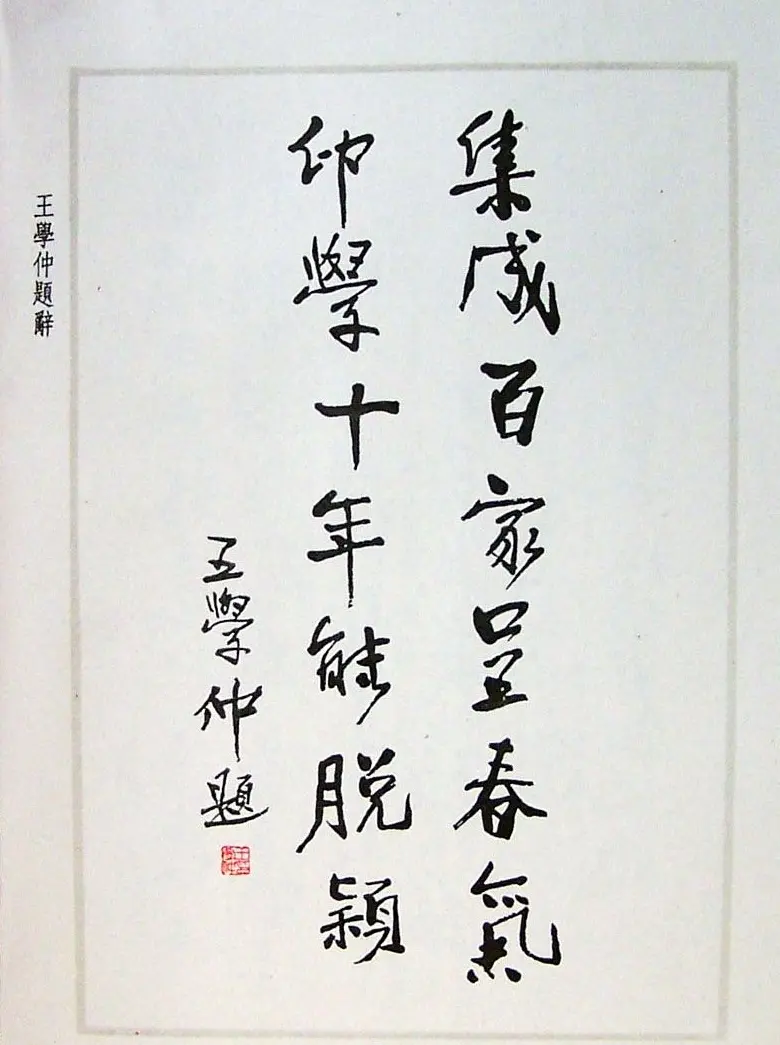 集成百家呈春氣
印學十年能脫穎
王學仲題
王學仲題辭